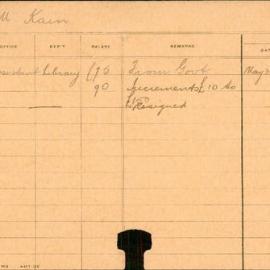 M Kain
OFFICE DEP'T SALARY REMARKS DATE
Library £75 From Govt May
90 Increment £10 to
Resigned